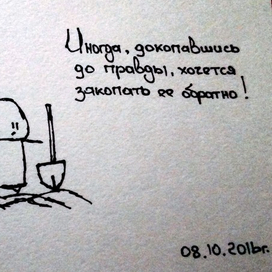 Иногда, докопавшись
до правды, хочется
закопать ее обратно!
08.10.2016г.